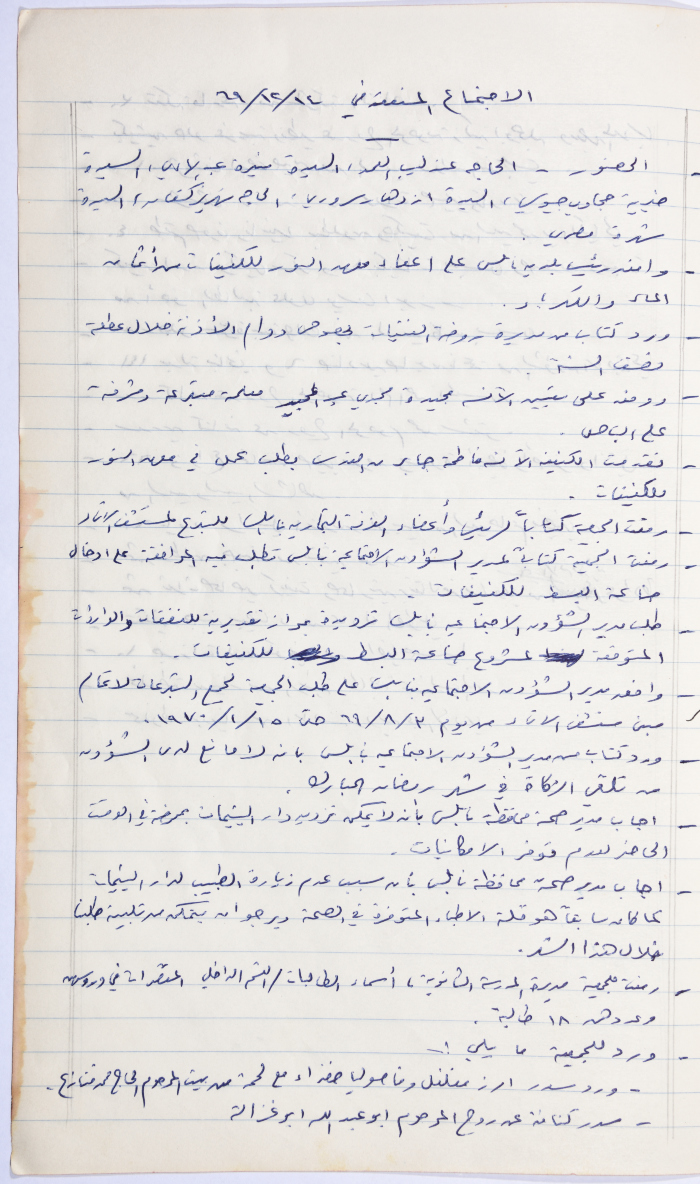 الاجتماع المنعقد في ٦٩/١٢/١٤
- الحضور - الحاجة عندليب العمد، السيدة منيرة عبد الهادي، السيدة
السيدة ازدهار سرور، الحاجه كنعان، السيدة
شهرة مصري.
- وافق رئيس بلدية نابلس على اعفاء معهد النور للكفيفات من أثمان
الماء والكهرباء.
- ورد كتاب من مديرة روضة الفتيات بخصوص دوام الآذنة خلال عطلة
نصف السنة.
- ووفق على تعيين الآنسه مجيدة مجدي عبد المجيد معلمة متبرعة ومشرفة
على الباص.
- تقدمت الكفيفه الآنسه فاطمة جابر من القدس بطلب عمل في معهد النور
للكفيفات.
- رفعت الجمعية كتاباً لرئيس وأعضاء الغرفة التجارية بنابلس للتبرع لمستشفى الاتحاد
- رفعت الجمعية كتاباً لمدير الشؤون الاجتماعية نابلس تطلب فيه الموافقة على ادخال
صناعة البسط للكفيفات
- طلب مدير الشؤون الاجتماعيه نابلس تزويده بموازنة تقديرية للنفقات والواردات
المتوقعة لمشروع صناعة البسط للكفيفات.
- وافق مدير الشؤون الاجتماعيه نابلس على طلب الجمعية لجمع التبرعات لاتمام
مبنى مستشفى الاتحاد من يوم ٦٩/٨/٣ حتى ١٩٧٠/١/١٥.
- ورد كتاب من مدير الشؤون الاجتماعيه نابلس بانه لا مانع لدى الشؤون
من تلقي الزكاة في شهر رمضان المبارك.
- اجاب مدير صحة محافظة نابلس بأنه لا يمكن تزويد دار اليتيمات بممرضة في الوقت
الحاضر لعدم توفر الامكانيات.
- اجاب مدير صحة محافظة نابلس بأن سبب عدم زيارة الطبيب لدار اليتيمات
كما كان سابقاً هو قلة الاطباء المتوفرة في الصحة ويرجو ان يتمكن من تلبية طلبنا
خلال هذا الشهر.
- رفعت للجمعية مديرة المدرسة الثانوية، أسماء الطالبات/القسم الداخلي المقصرات في دروسهن
وعددهن ١٨ طالبة.
- ورد للجمعية ما يلي :-
- ورد سدر ارز مفلفل وفاصوليا خضراء مع لحمة من بيت المرحوم الحاج محمد
- سدر كنافة عن روح المرحوم ابو عبد الله ابو غزالة